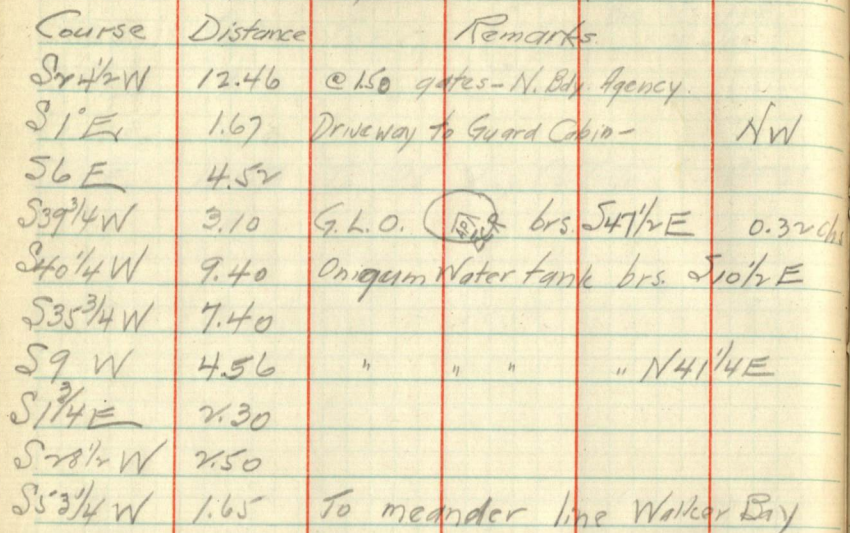 Course Distance Remarks
S24½W 12.46 @ 1.50 gates - N. Bdy. Agency.
S1°E 1.67 Driveway to Guard Cabin - NW
S6E 4.52
S39¾W 3.10 G.L.O. AP brs. S47½E 0.32 chs
S40¼W 9.40 Onigum Water tank brs. S10½E
S35¾W 7.40
S9 W 4.56 " " " " N41¼E
S1¾E 2.30
S28½W 2.50
S53¼W 1.65 To meander line Walker Bay